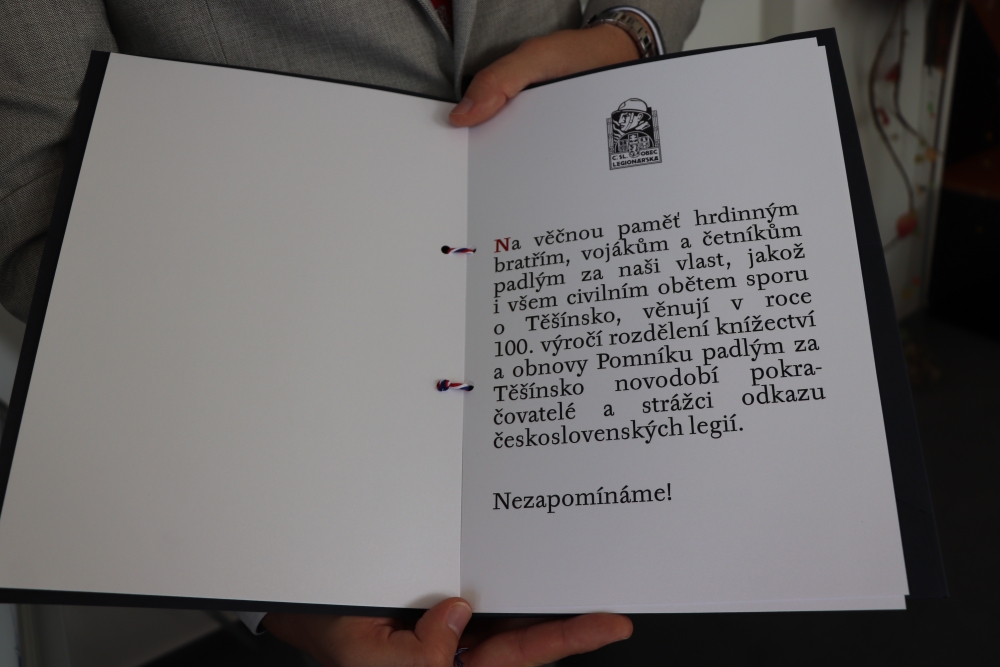 Č. SL. OBEC
LEGIONÁŘSKÁ
Na věčnou paměť hrdinným
bratřím, vojákům a četníkům
padlým za naši vlast, jakož
i všem civilním obětem sporu
o Těšínsko, věnují v roce
100. výročí rozdělení knížectví
a obnovy Pomníku padlým za
Těšínsko novodobí pokra-
čovatelé a strážci odkazu
československých legií.
Nezapomínáme!